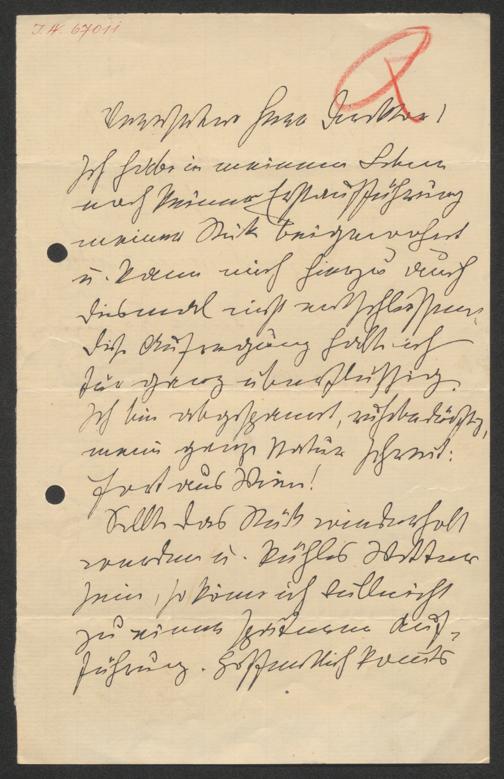 I.N. 67011
Verehrter Herr Direktor!
Ich habe in meinem Leben
noch keiner Erstaufführung
meiner Stücke beigewohnt
u. kann mich hierzu auch
diesmal nicht entschließen.
Die Aufregung halte ich
für ganz überflüssig.
Ich bin abgespannt, ruhebedürftig,
meine ganze Natur schreit:
fort aus Wien!
Sollte das Stück wiederholt
werden u. kühles Wetter
sein, so komme ich vielleicht
zu einer späteren Auf-
führung. Hoffentlich